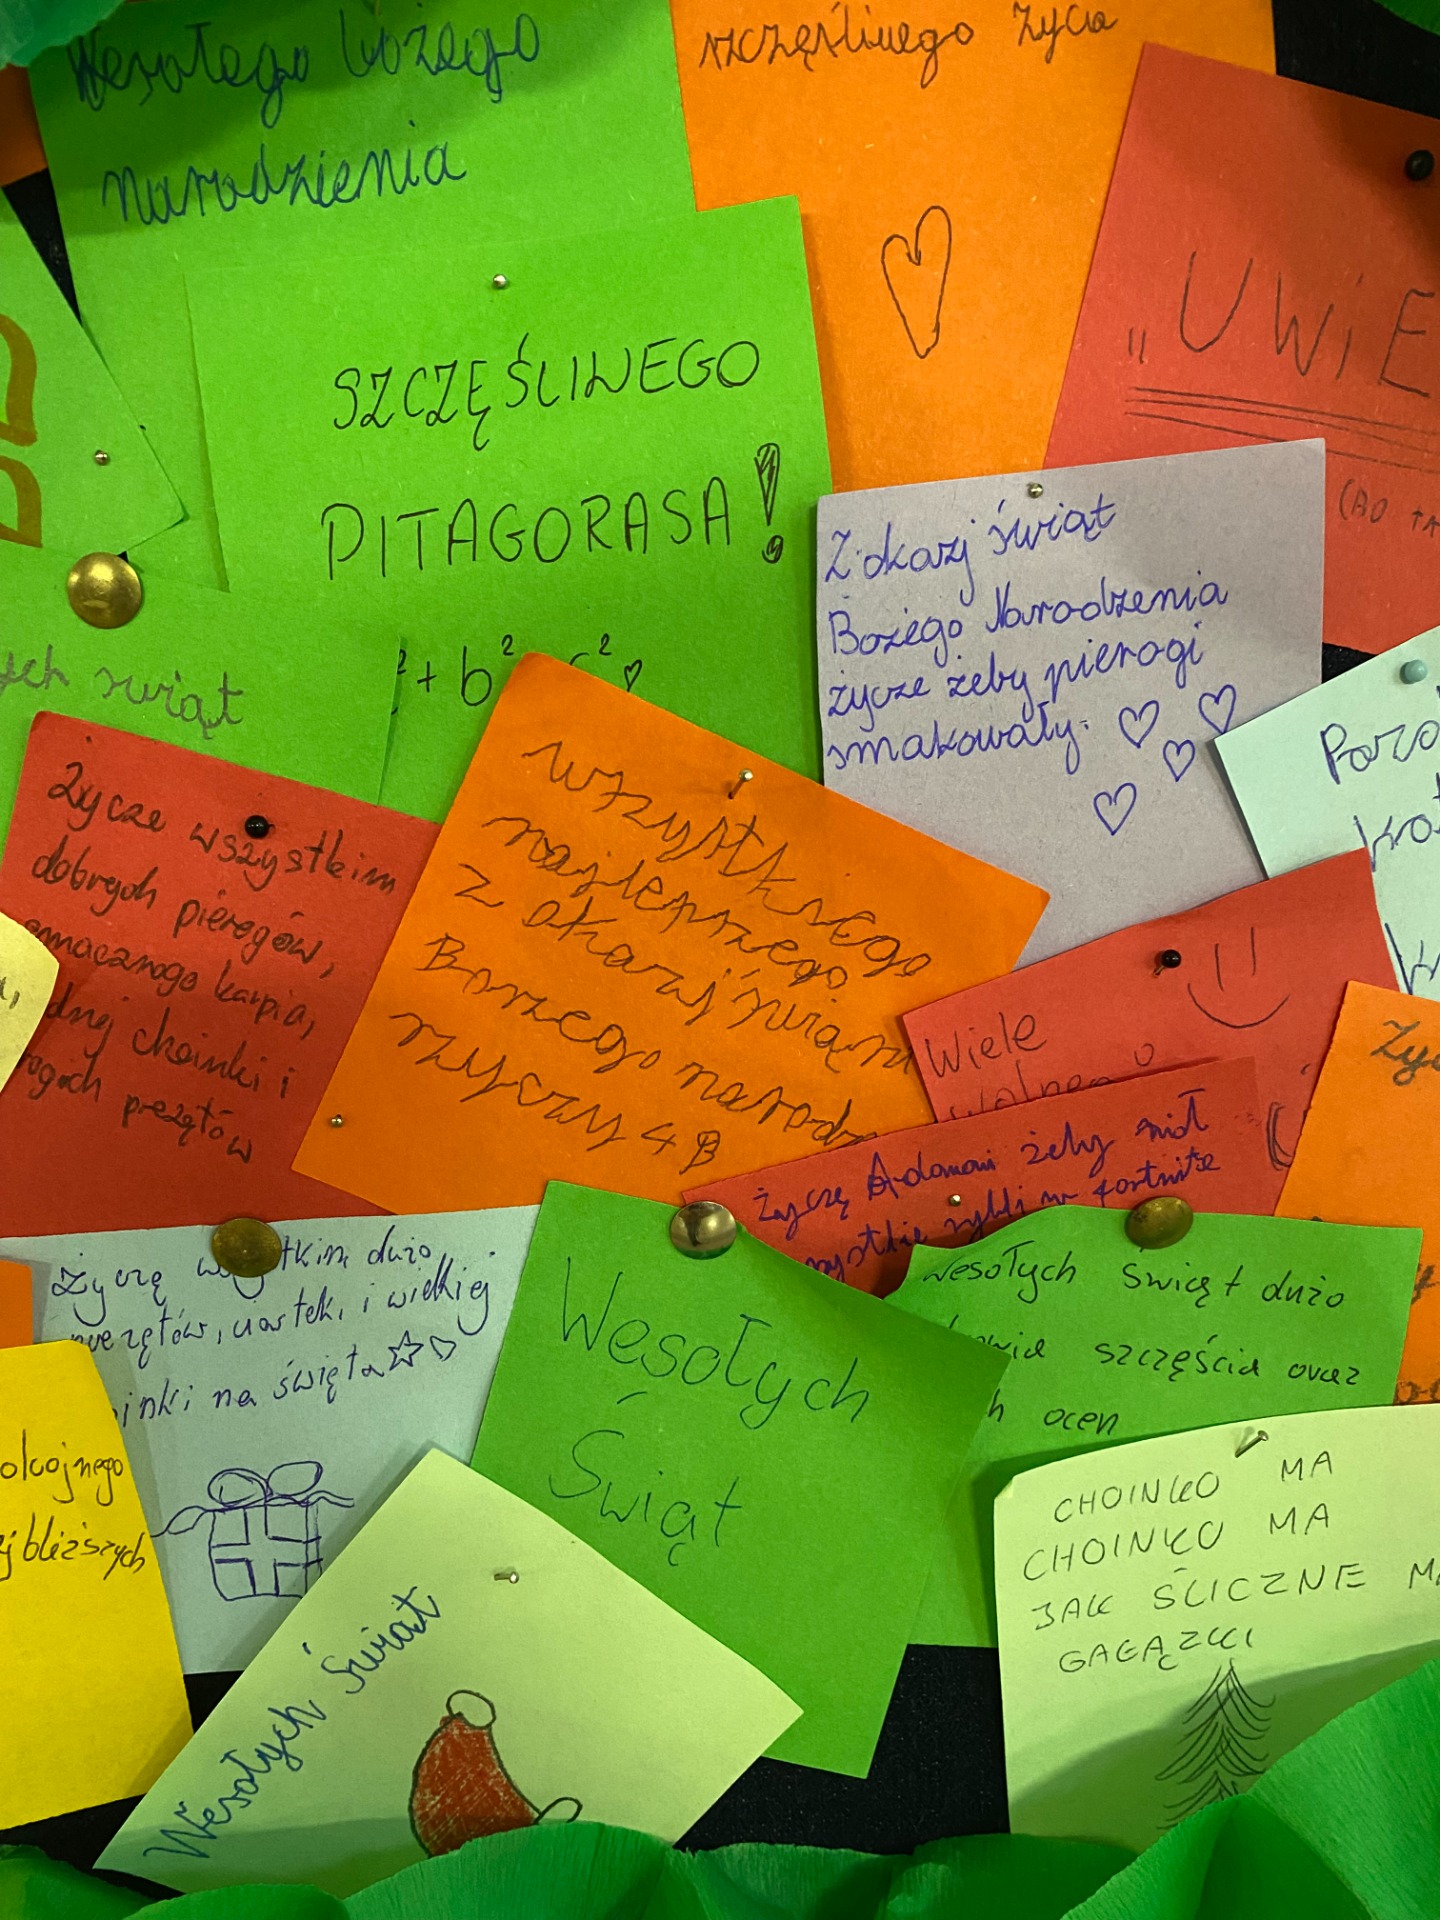 Wesołego bożego
narodzienia
szczęśliwego życia
„UWIE
(BO
SZCZĘŚLIWEGO
PITAGORASA!
²+ b² c²
Z okazj świąt
Bożego Narodzenia
życze żeby pierogi
smakowały.
ych świąt
życze wszystkim
dobrych pierogów,
smacznego karpia,
dnej choinki i
ogich prezątów
wszystkiego
najleprzego
z okazyj świąn
Borzego narodze
rzyczy 4 B
Wiele
Życzę Adamowi żeby miał
wystkie sykli w fortnite
Życzę wszystkim dużo
prezętów, ciastek, i wielkiej
inki na święta
Wesołych
Świąt
Wesołych świąt dużo
owia szczęścia oraz
h ocen
okojnego
jbliższych
Wesołych Świąt
CHOINKO MA
CHOINKO MA
JAK ŚLICZNE MA
GAŁĄZKI